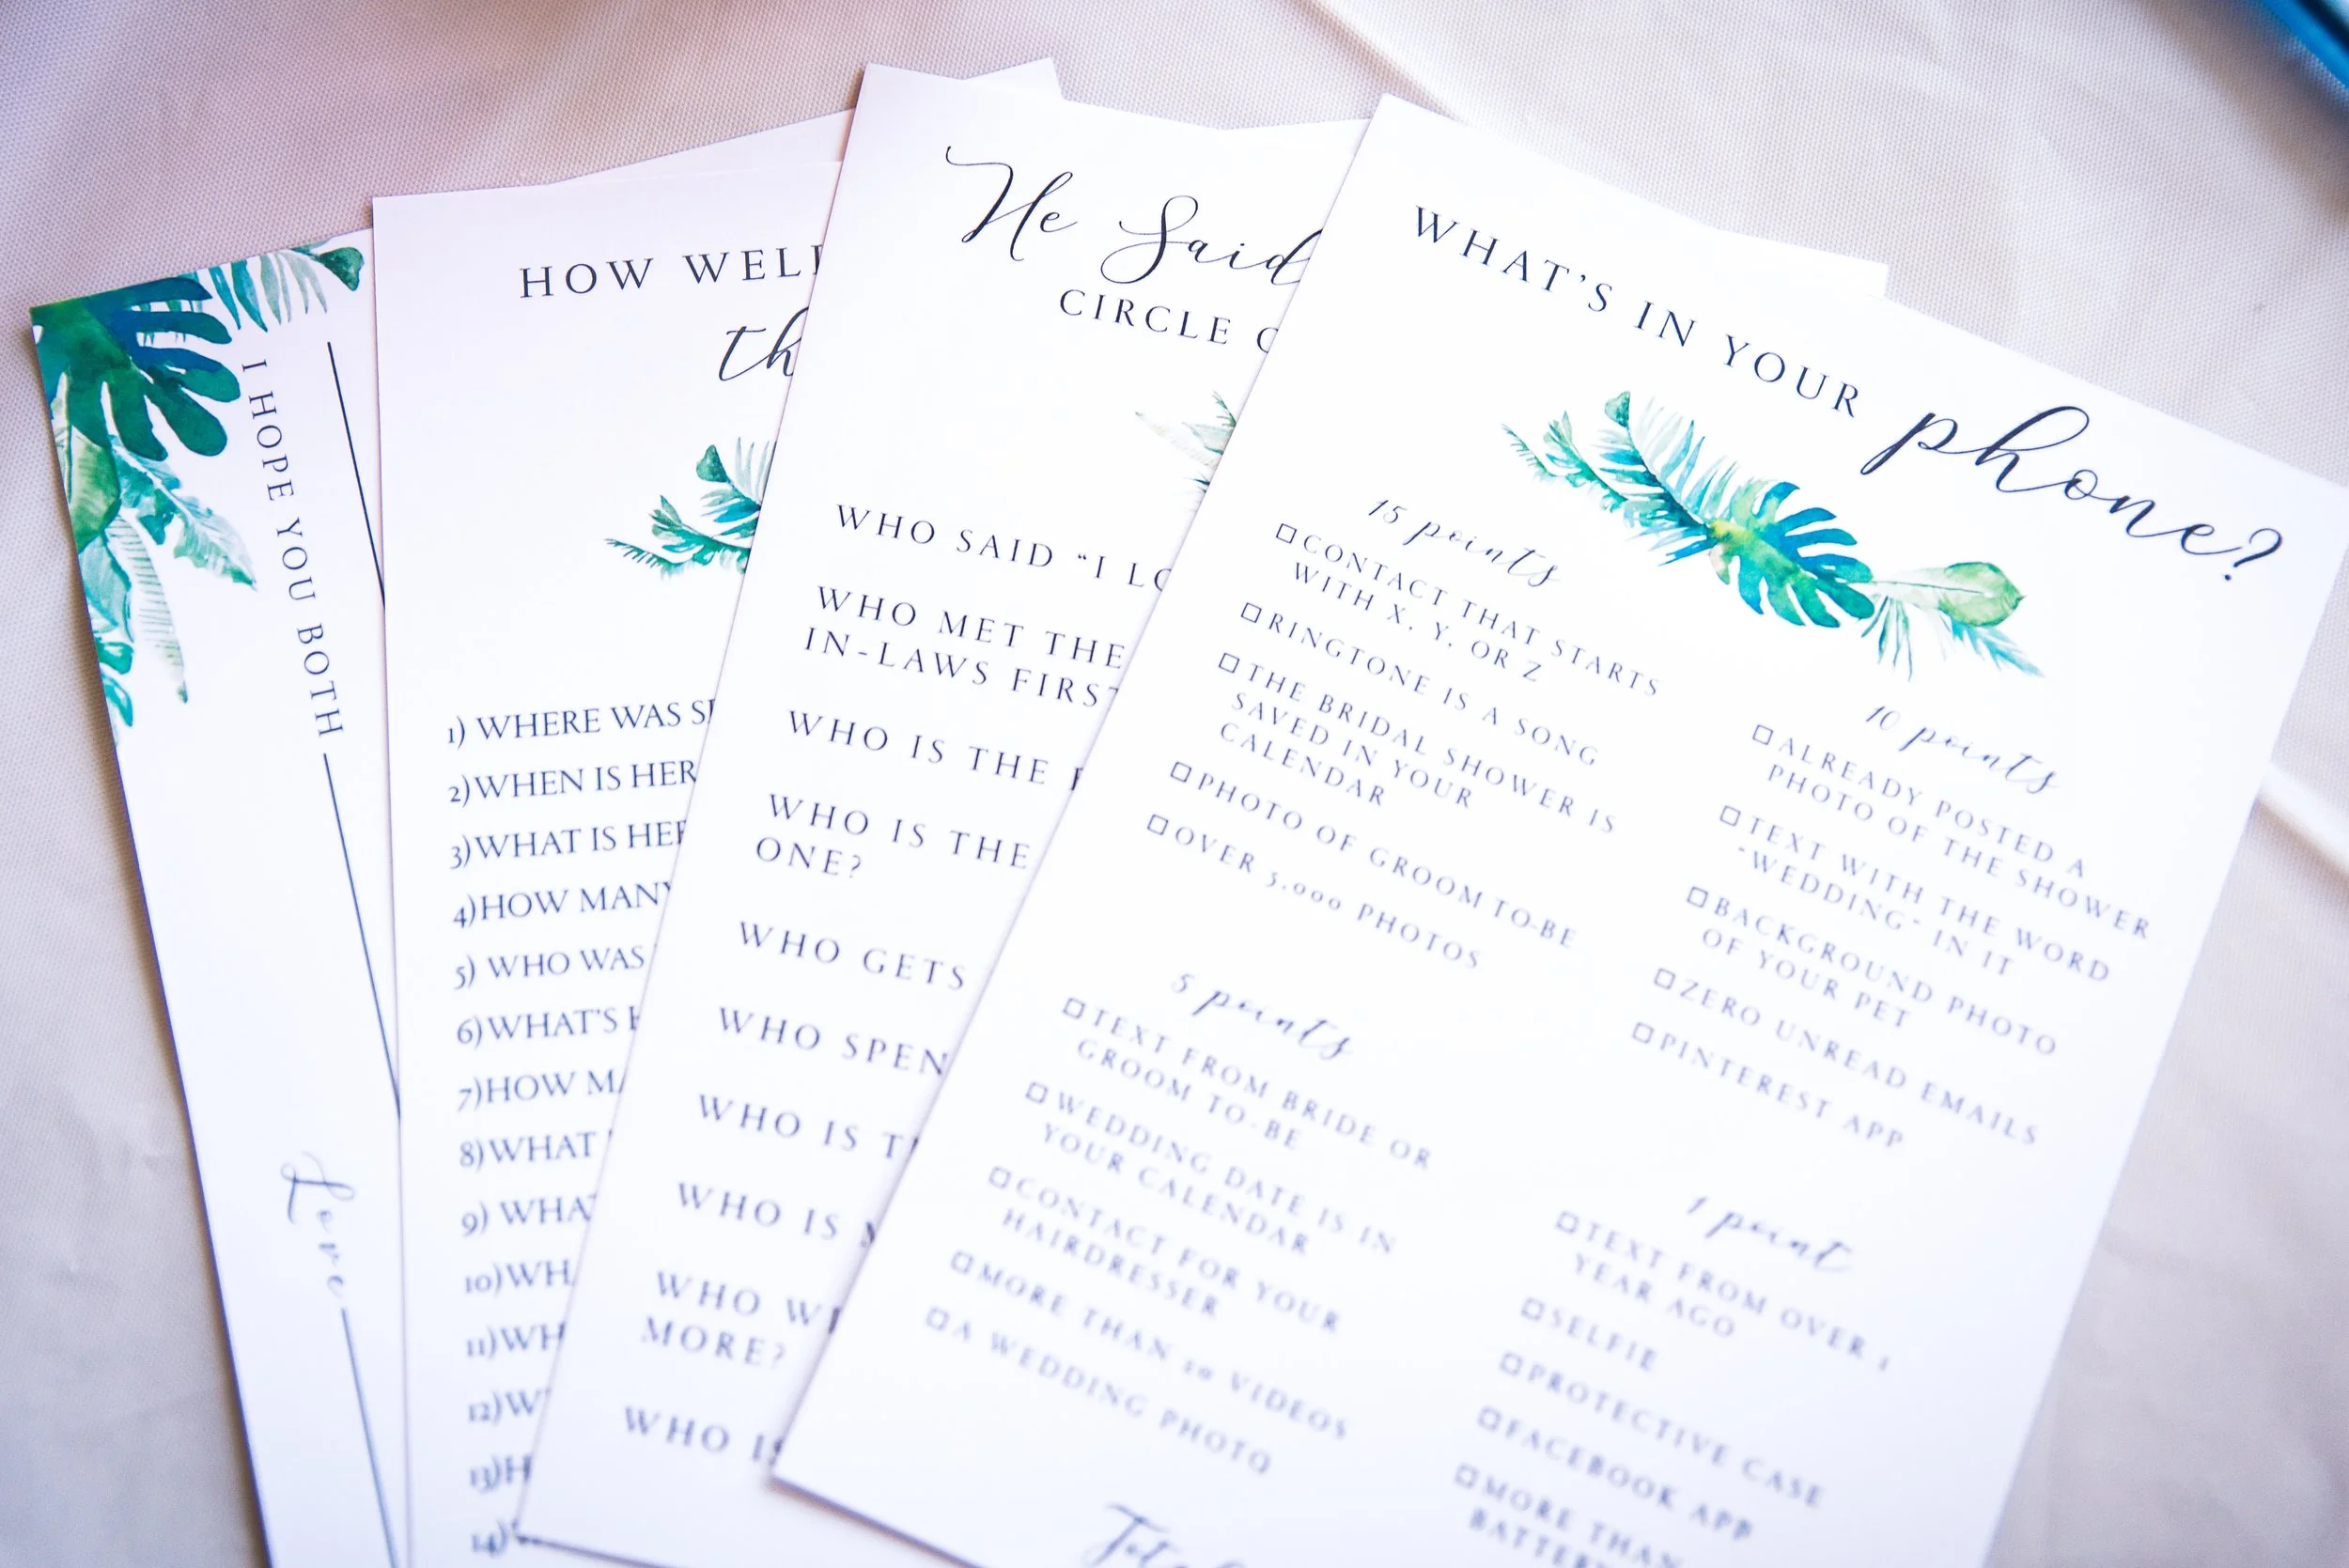 I HOPE YOU BOTH
Love
HOW WELL
th
1) WHERE WAS
2)WHEN IS HER
3)WHAT IS HER
4)HOW MANY
5) WHO WAS
6)WHAT'S
7)HOW
8)WHAT
9) WHA
10)WH
11)WH
12)W
13)H
14)
He Said
CIRCLE
WHO SAID "I LO
WHO MET THE
IN-LAWS FIRST
WHO IS THE
WHO IS THE
ONE?
WHO GETS
WHO SPEN
WHO IS
WHO IS
WHO W
MORE?
WHO IS
WHAT'S IN YOUR phone?
15 points
CONTACT THAT STARTS
WITH X, Y, OR Z
RINGTONE IS A SONG
THE BRIDAL SHOWER IS
SAVED IN YOUR
CALENDAR
PHOTO OF GROOM TO-BE
OVER 5,000 PHOTOS
10 points
ALREADY POSTED A
PHOTO OF THE SHOWER
TEXT WITH THE WORD
"WEDDING" IN IT
BACKGROUND PHOTO
OF YOUR PET
ZERO UNREAD EMAILS
PINTEREST APP
5 points
TEXT FROM BRIDE OR
GROOM TO-BE
WEDDING DATE IS IN
YOUR CALENDAR
CONTACT FOR YOUR
HAIRDRESSER
MORE THAN 10 VIDEOS
A WEDDING PHOTO
1 point
TEXT FROM OVER 1
YEAR AGO
SELFIE
PROTECTIVE CASE
FACEBOOK APP
MORE THAN
BATTER
Total